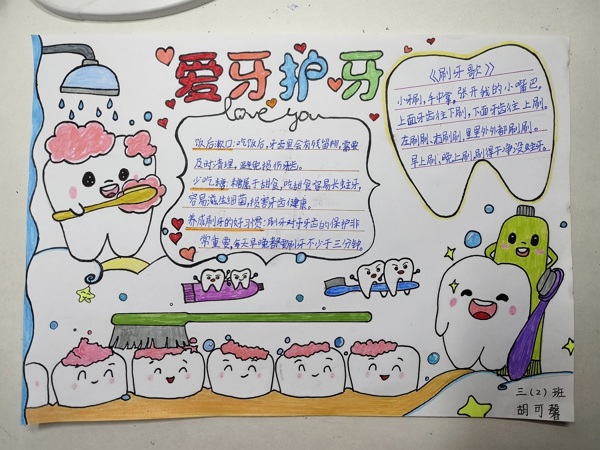 爱牙护牙
love you
饭后漱口:吃饭后,牙齿里会有残留物,需要
及时清理,避免损伤牙齿。
少吃糖:糖属于甜食,吃甜食容易长蛀牙,
容易滋生细菌,损害牙齿健康。
养成刷牙的好习惯:刷牙对于牙齿的保护非
常重要,每天早晚都要刷牙不少于三分钟。
《刷牙歌》
小牙刷,手中拿,张开我的小嘴巴。
上面牙齿往下刷,下面牙齿往上刷。
左刷刷、右刷刷 里里外外都刷刷。
早上刷、晚上刷,刷得干净没蛀牙。
三(2)班
胡可馨